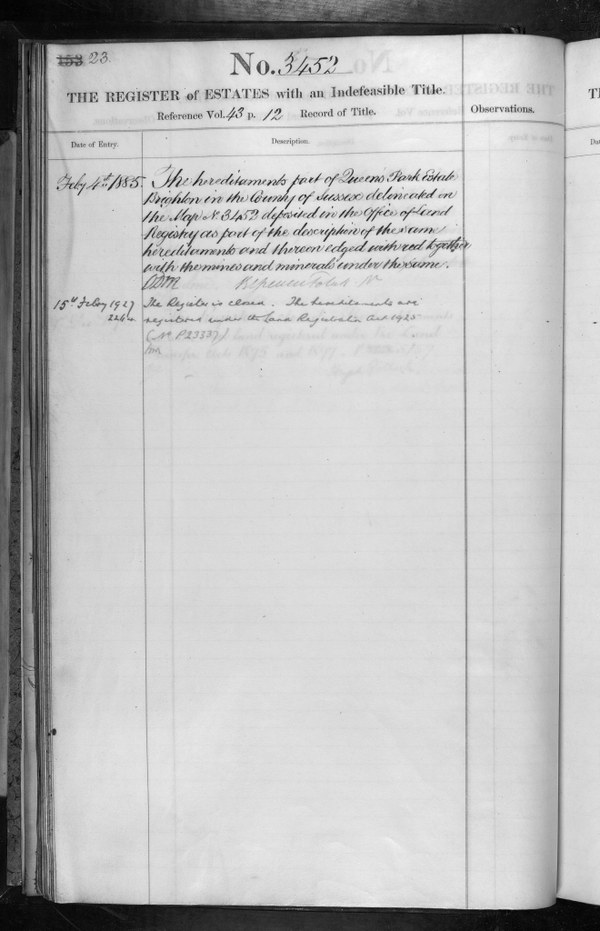 153 23.
No. 3452
THE REGISTER of ESTATES with an Indefeasible Title.
Reference Vol. 43 p. 12 Record of Title.
Observations.
Date of Entry.
Description.
Feby 4th 1885. The hereditaments part of Queens Park Estate
Brighton in the County of Sussex delineated on
the Map No. 3452 deposited in the Office of Land
Registry as part of the description of the same
hereditaments and thereon edged with red together
with the mines and minerals under the same.
15th Feby 1927 The Register is closed. The hereditaments are
registered under the Land Registration Act 1925
(No. P23337)